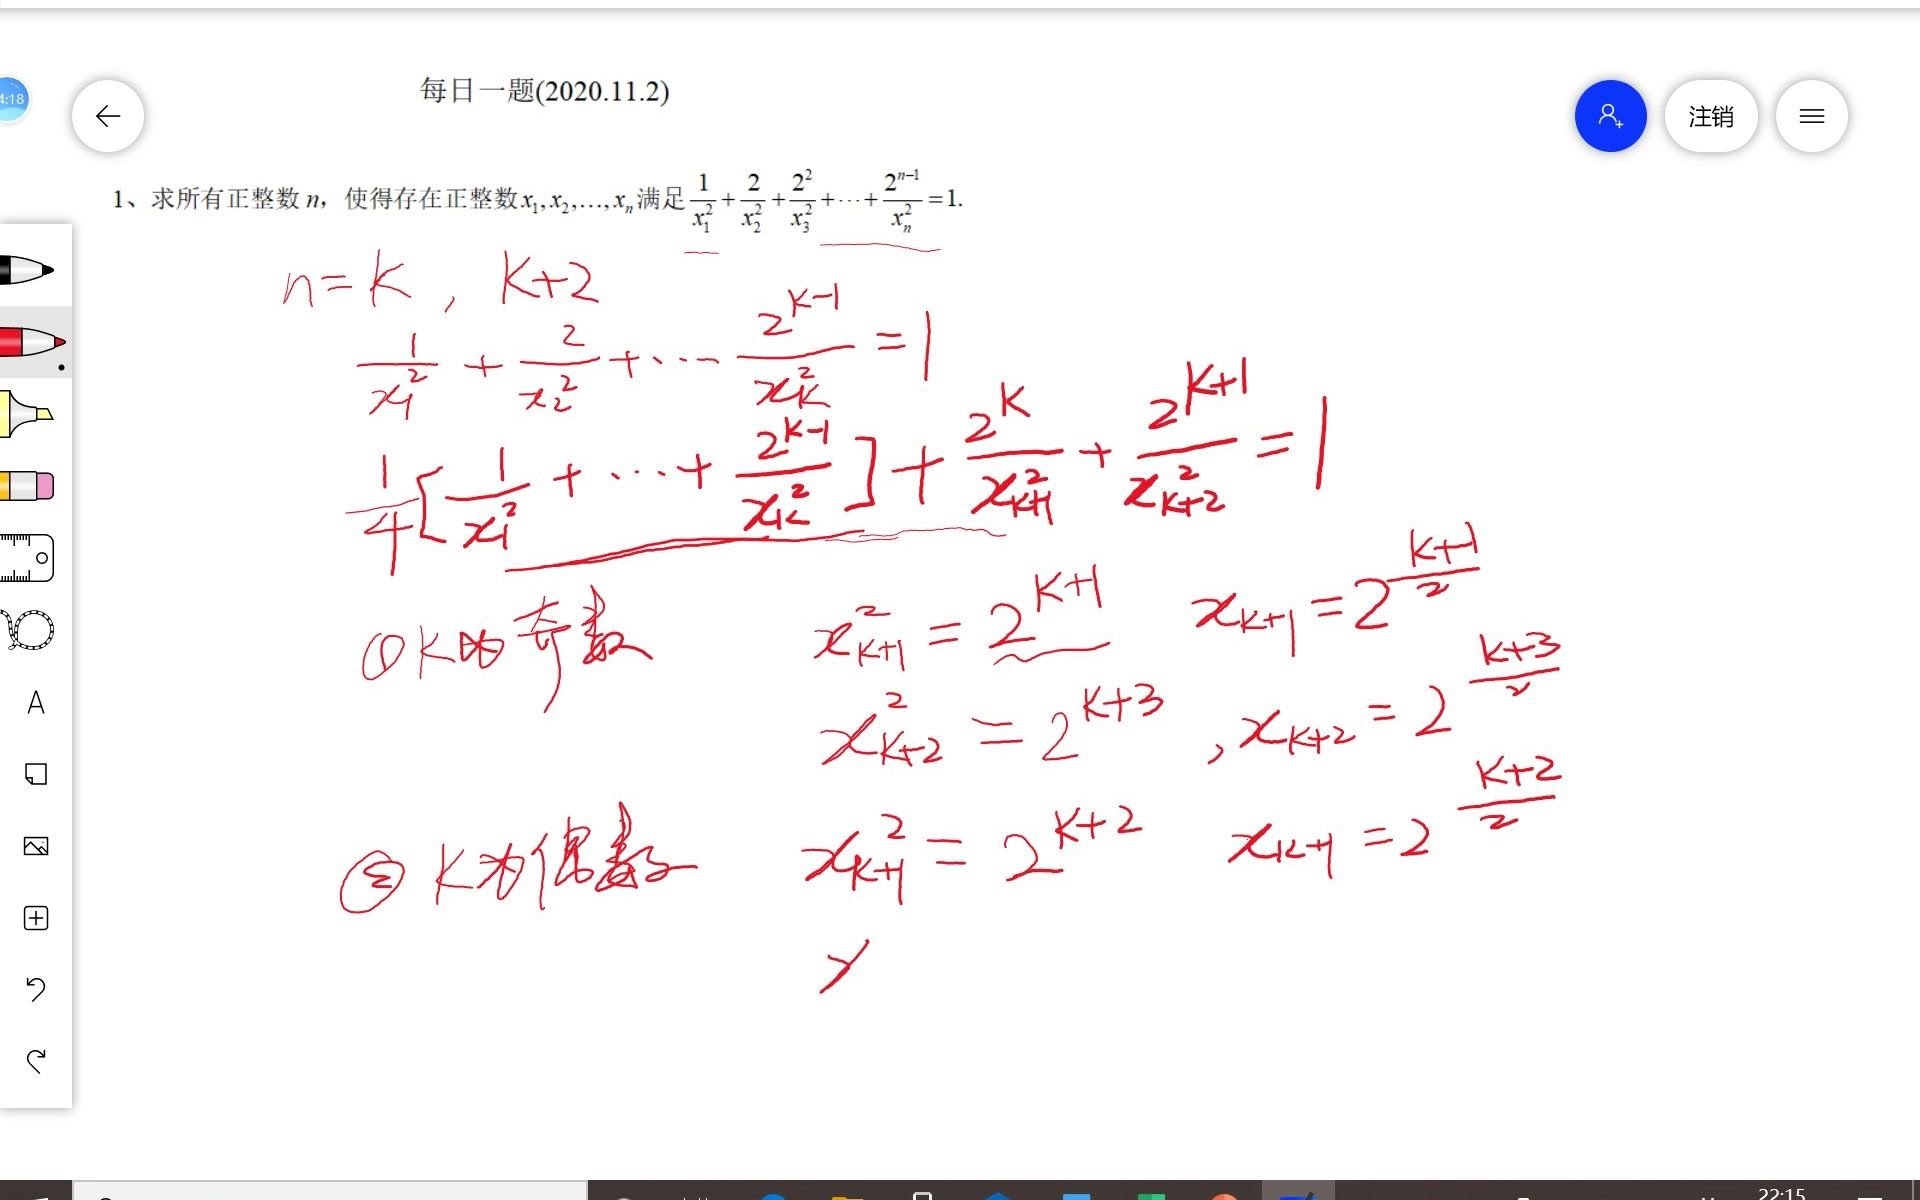 每日一题(2020.11.2)
4:18
注销
1、求所有正整数 n，使得存在正整数 x₁,x₂,…,xₙ 满足 1/x₁² + 2/x₂² + 2²/x₃² + ⋯ + 2ⁿ⁻¹/xₙ² = 1.
n = K , K+2
1/x₁² + 2/x₂² + ⋯ 2^(K-1)/x_K² = 1
1/4 [ 1/x₁² + ⋯ + 2^(K-1)/x_K² ] + 2^K/x_(K+1)² + 2^(K+1)/x_(K+2)² = 1
① K为奇数 x_(K+1)² = 2^(K+1) x_(K+1) = 2^((K+1)/2)
x_(K+2)² = 2^(K+3) , x_(K+2) = 2^((K+3)/2)
② K为偶数 x_(K+1)² = 2^(K+2) x_(K+1) = 2^((K+2)/2)
A
22:15